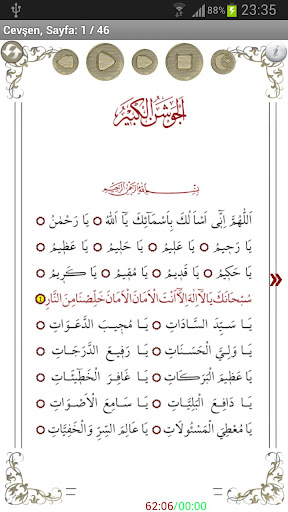 23:35
Cevşen, Sayfa: 1 / 46
اَلْجَوْشَنُ الْكَبِيرُ
بِسْمِ اللهِ الرَّحْمٰنِ الرَّحِيمِ
اَللّٰهُمَّ اِنِّى اَسْاَلُكَ بِاَسْمَائِكَ يَا اَللهُ يَا رَحْمٰنُ
يَا رَحِيمُ يَا عَلِيمُ يَا حَلِيمُ يَا عَظِيمُ
يَا حَكِيمُ يَا قَدِيمُ يَا مُقِيمُ يَا كَرِيمُ
سُبْحَانَكَ يَا لَا اِلٰهَ اِلَّا اَنْتَ الْاَمَانَ الْاَمَانَ خَلِّصْنَا مِنَ النَّارِ 1
يَا سَيِّدَ السَّادَاتِ يَا مُجِيبَ الدَّعَوَاتِ
يَا وَلِيَّ الْحَسَنَاتِ يَا رَفِيعَ الدَّرَجَاتِ
يَا عَظِيمَ الْبَرَكَاتِ يَا غَافِرَ الْخَطِيئَاتِ
يَا دَافِعَ الْبَلِيَّاتِ يَا سَامِعَ الْاَصْوَاتِ
يَا مُعْطِيَ الْمَسْئُولَاتِ يَا عَالِمَ السِّرِّ وَالْخَفِيَّاتِ
62:06/00:00